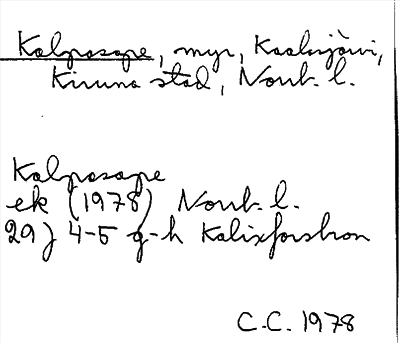 Kalpasape, myr, Kaalasjärvi,
Kiruna stad, Norrb. l.
Kalpasape
ek (1978) Norrb. l.
29J 4-5 g-h Kalixforsbron
C.C. 1978